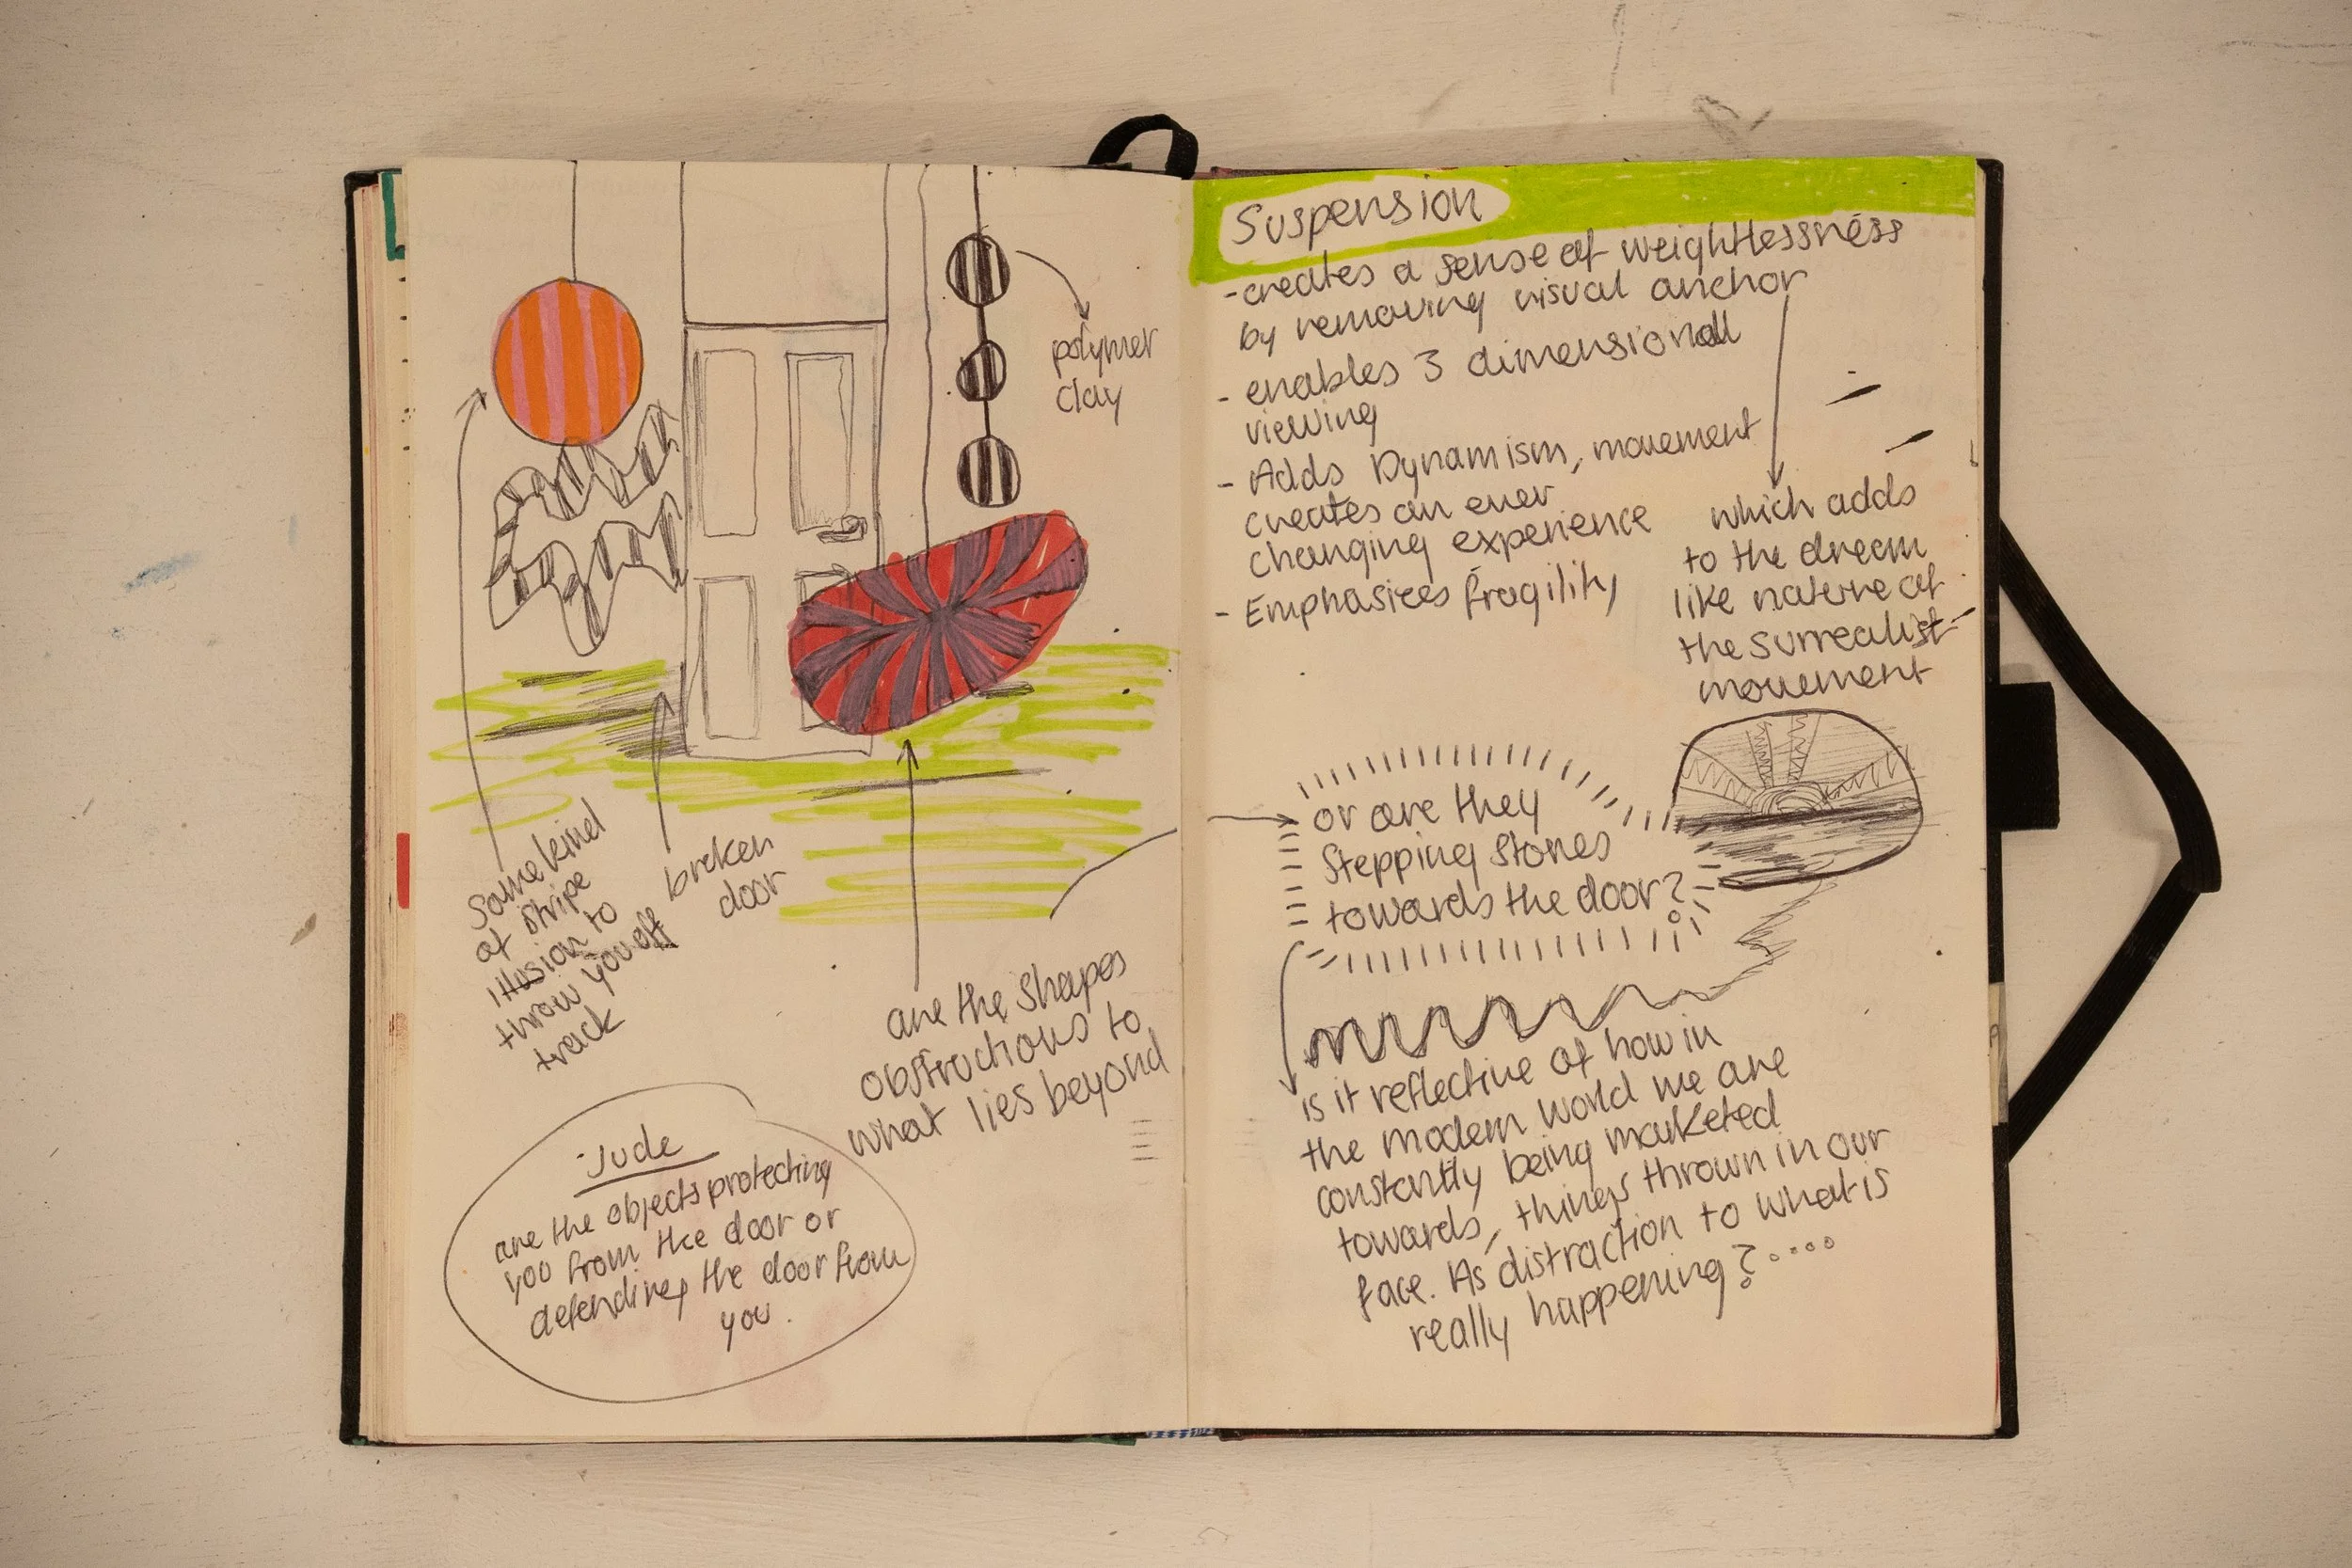 polymer
clay
Same kind
of stripe
illusion to
throw you off
track
broken
door
are the shapes
obstructions to
what lies beyond
Jude
are the objects protecting
you from the door or
defending the door from
you.
Suspension
- creates a sense of weightlessness
by removing visual anchor
- enables 3 dimensional
viewing
- Adds Dynamism, movement
creates an ever
changing experience
- Emphasises fragility
which adds
to the dream
like nature of
the surrealist
movement
or are they
Stepping stones
towards the door?
is it reflective of how in
the modern world we are
constantly being marketed
towards, things thrown in our
face. As distraction to what is
really happening?....